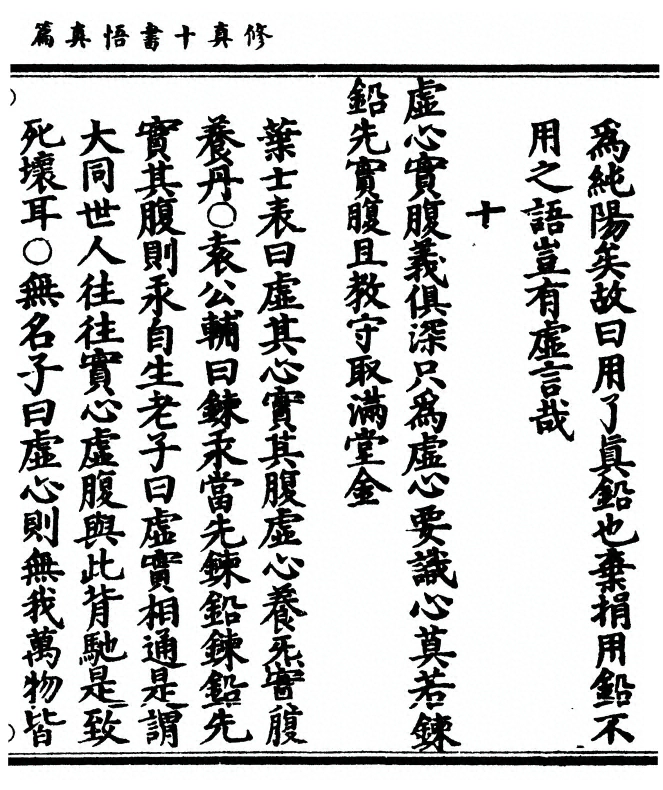 修真十書悟真篇
爲純陽矣故曰用了眞鉛也棄捐用鉛不
用之語豈有虛言哉
十
虛心實腹義俱深只爲虛心要識心莫若鍊
鉛先實腹且教守取滿堂金
葉士表曰虛其心實其腹虛心養死實腹
養丹○袁公輔曰鍊汞當先鍊鉛鍊鉛先
實其腹則汞自生老子曰虛實相通是謂
大同世人往往實心虛腹與此背馳是致
死壞耳○無名子曰虛心則無我萬物皆